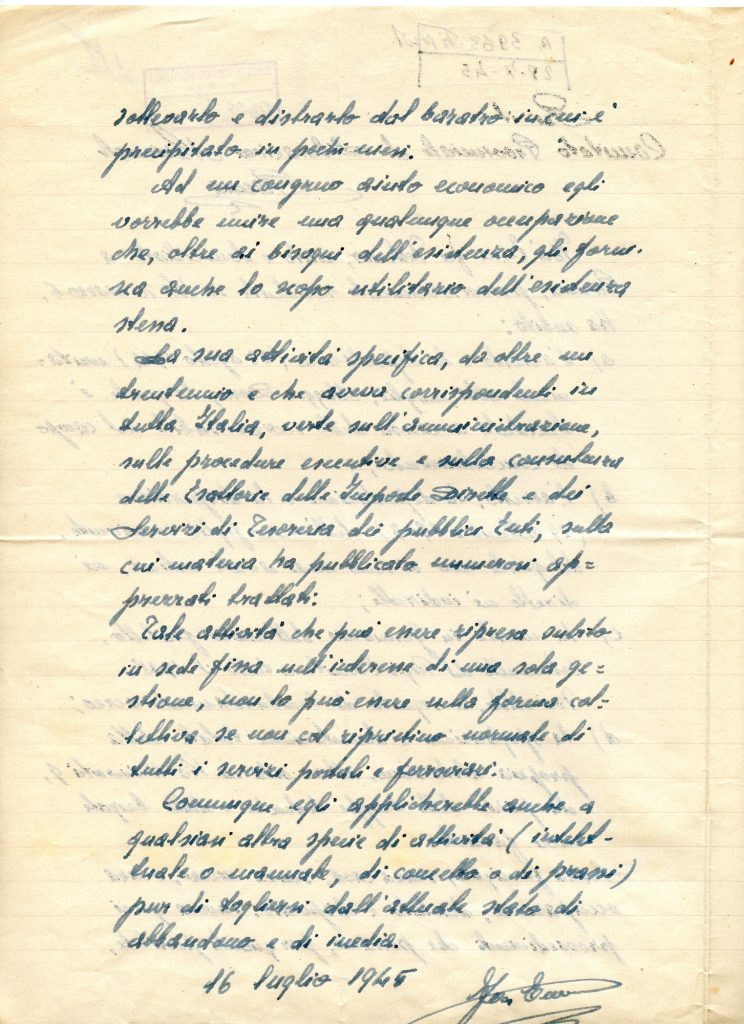 sollevarlo e distrarlo dal baratro in cui è
precipitato in pochi mesi.
Ad un congruo aiuto economico egli
vorrebbe unire una qualunque occupazione
che, oltre ai bisogni dell'esistenza, gli forni-
sca anche lo scopo utilitario dell'esistenza
stessa.
La sua attività specifica, da oltre un
trentennio e che aveva corrispondenti in
tutta Italia, verte sull'amministrazione,
sulle procedure esecutive e sulla consulenza
delle Esattorie delle Imposte Dirette e dei
Servizi di Tesoreria dei pubblici Enti, sulla
cui materia ha pubblicato numerosi ap=
prezzati trattati.
Tale attività che può essere ripresa subito
in sede fissa nell'interesse di una sola ge=
stione, non lo può essere nella forma col-
lettiva se non col ripristino normale di
tutti i servizi postali e ferroviari.
Comunque egli applicherebbe anche a
qualsiasi altra specie di attività (intellet-
tuale o manuale, di concetto o di prassi)
pur di togliersi dall'attuale stato di
abbandono e di inedia.
16 luglio 1945